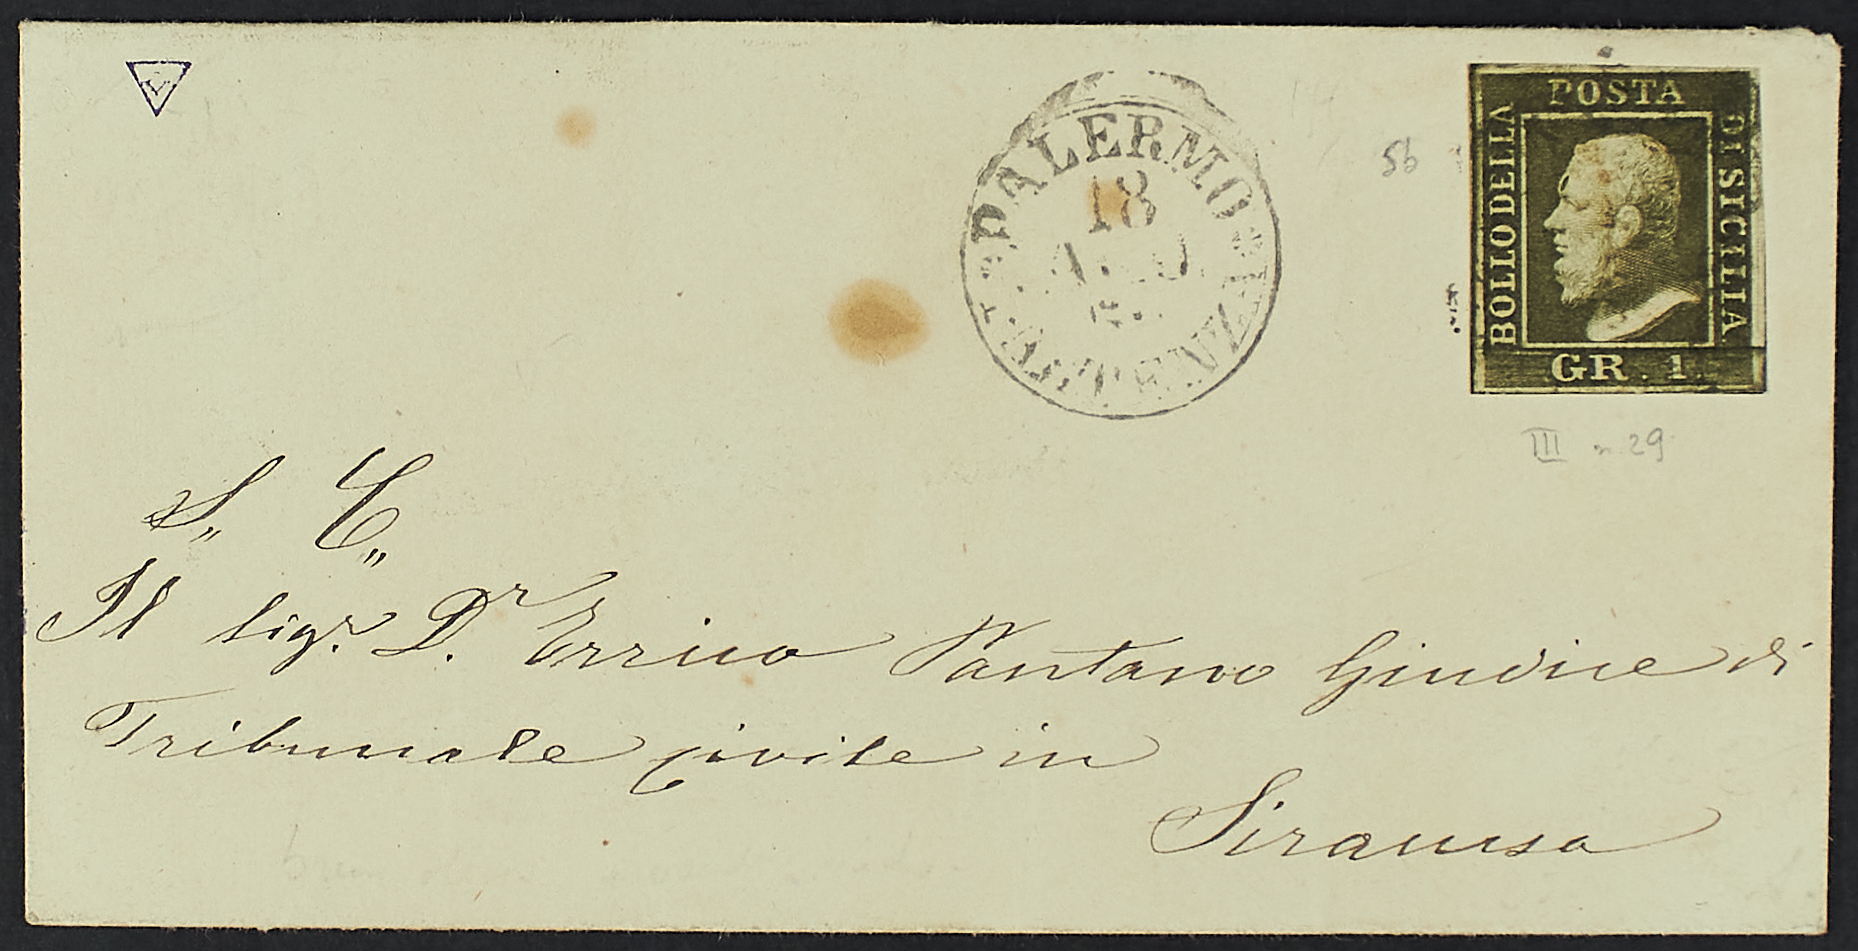 PALERMO PARTENZA
18
AGO
POSTA
BOLLO DELLA
DI SICILIA
GR. 1.
5b
III n. 29
S,, C,,
Il Sigr. D.r Errico Pantano Giudice di
Tribunale Civile in
Siracusa